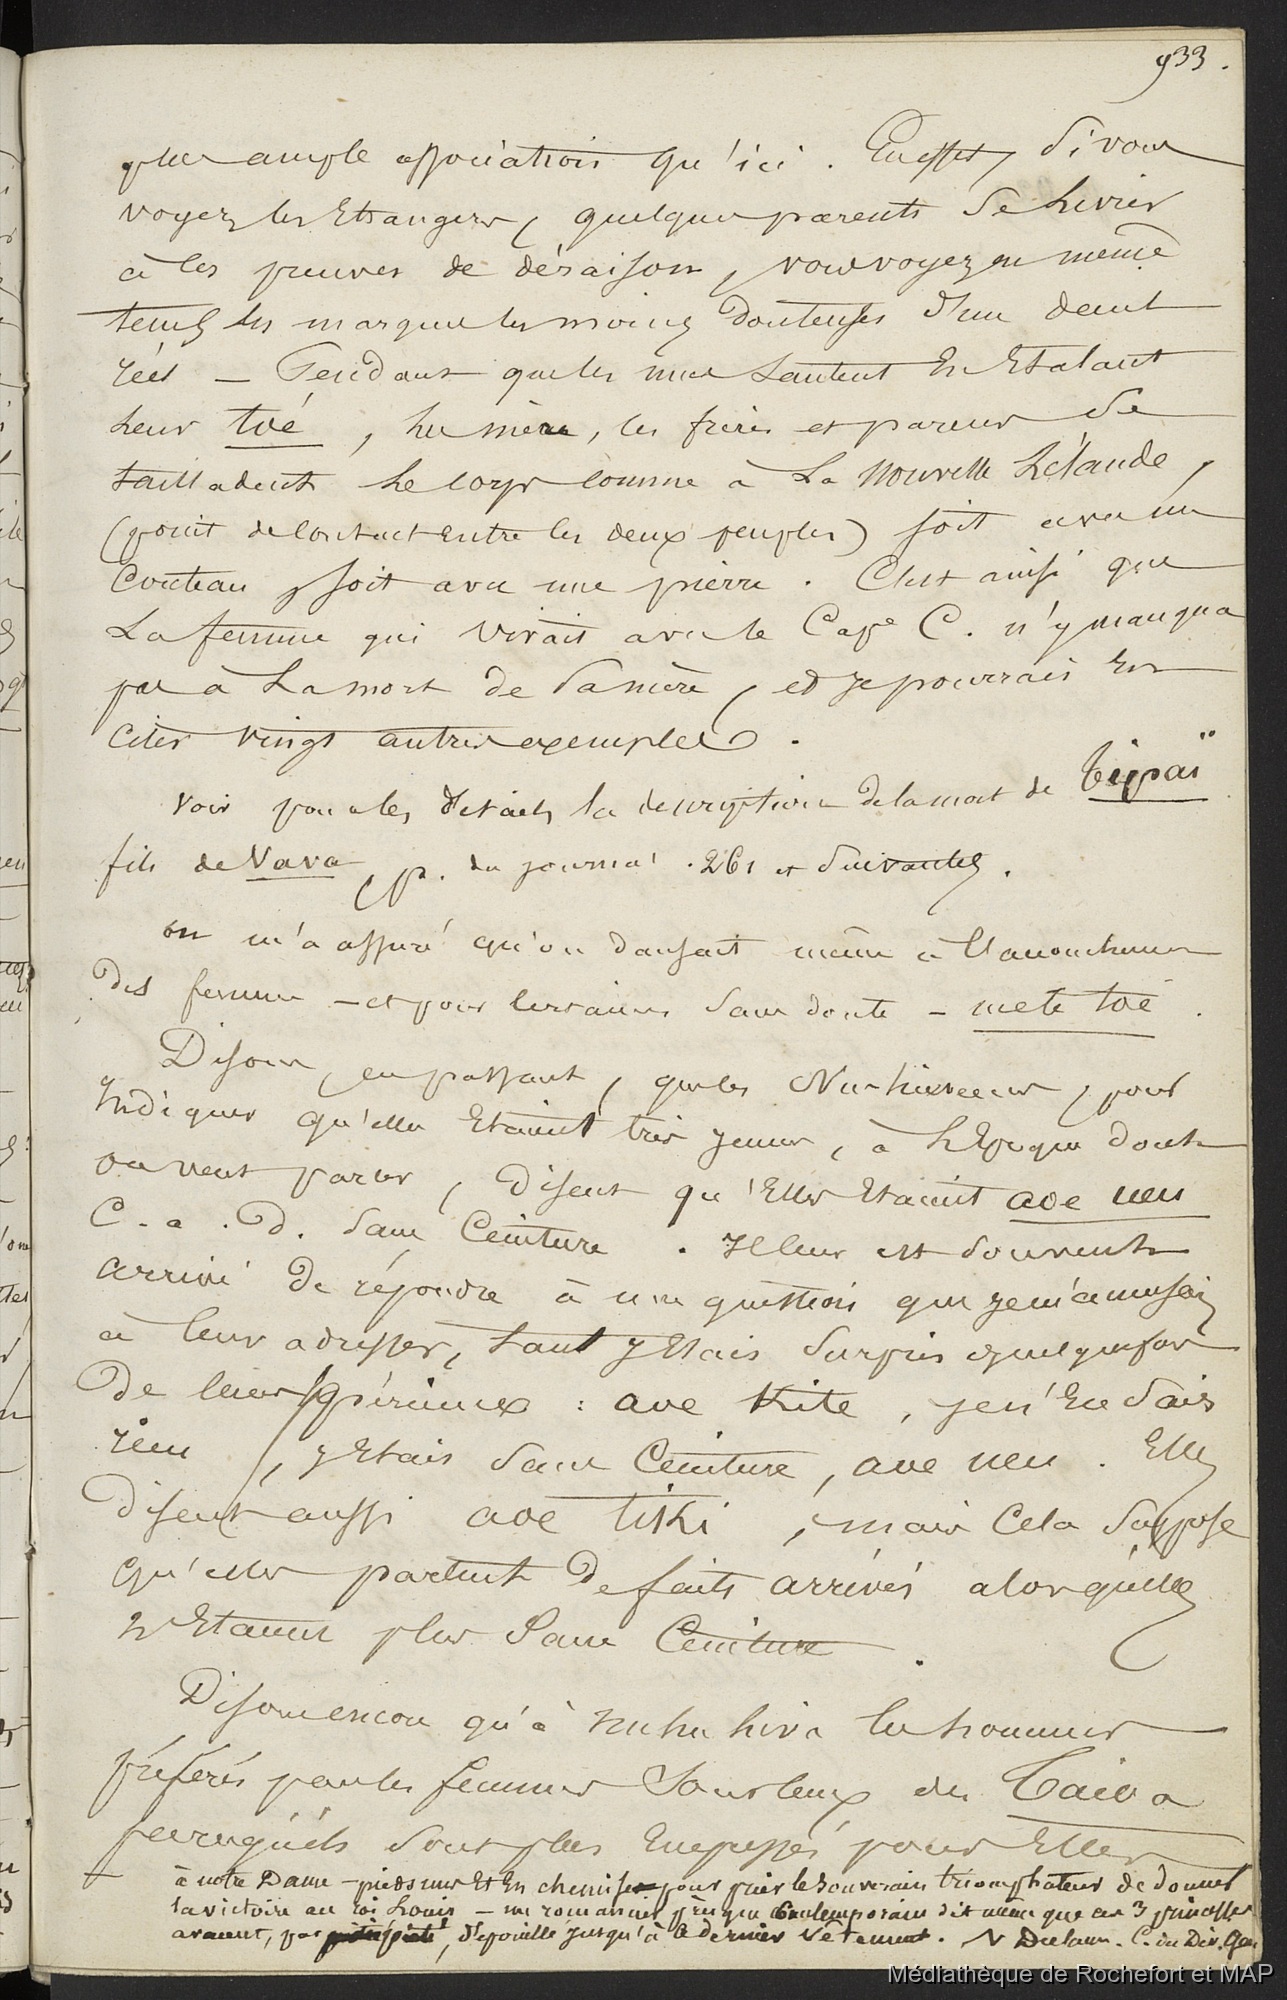 933.
plus ample association qu'ici. En effet, si vous
voyez les Etrangers, quelques parents se livrer
à ces preuves de déraison, vous voyez en même
tems les marques les moins douteuses d'un deuil
réel — Pendant que les unes sautent En Etalant
leur toé, les mères, les frères et parens se
tailladent le corps comme à la Nouvelle Zélande,
(point de contact entre les deux peuples) soit avec un
Couteau, soit avec une pierre. C'est ainsi que
La femme qui vivait avec le Cape C. n'y manqua
pas à la mort de sa mère, et je pourrais En
citer vingt autres exemples.
voir pour les détails la description de la mort de
fils de Vava, p. du journal 261 et Suivantes.
on m'a assuré qu'on dansait même à l'accouchement
des femmes — et pour certaines sans doute — mete toé.
Disons, en passant, que les Nu-hiveennes, pour
Indiquer qu'elles Etaient très jeunes, à l'Epoque dont
on veut parler, disent qu'Elles Etaient aoe ueu
C. a. D. sans Ceinture. Il leur est souvent
arrivé de répondre à une question que je m'amusais
à leur adresser, tant j'Etais surpris quelquefois
De leur Expérience: aoe kite, je n'En sais
rien, j'Etais sans Ceinture, aoe ueu. Elles
disent aussi aoe tiki, mais Cela suppose
qu'elles partent De faits arrivés alors qu'elles
n'Etaient plus Sans Ceinture.
Disons encore qu'à Nuhu hiva les hommes
préférés par les femmes sont ceux des Taioa
perruqués sont plus pour Elles
à notre Dame — pieds nus Et En chemise pour prier le souverain triomphateur de donner
la victoire au roi Louis — un romancier presque Contemporain dit même que ces 3 princesses
avaient, par piété, dépouillé jusqu'à ce dernier Vêtement.
Médiathèque de Rochefort et MAP